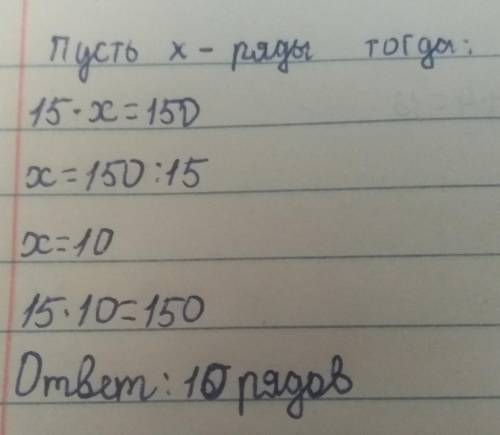 Пусть x - ряды тогда:
15·x=150
x=150:15
x=10
15·10=150
Ответ: 10 рядов